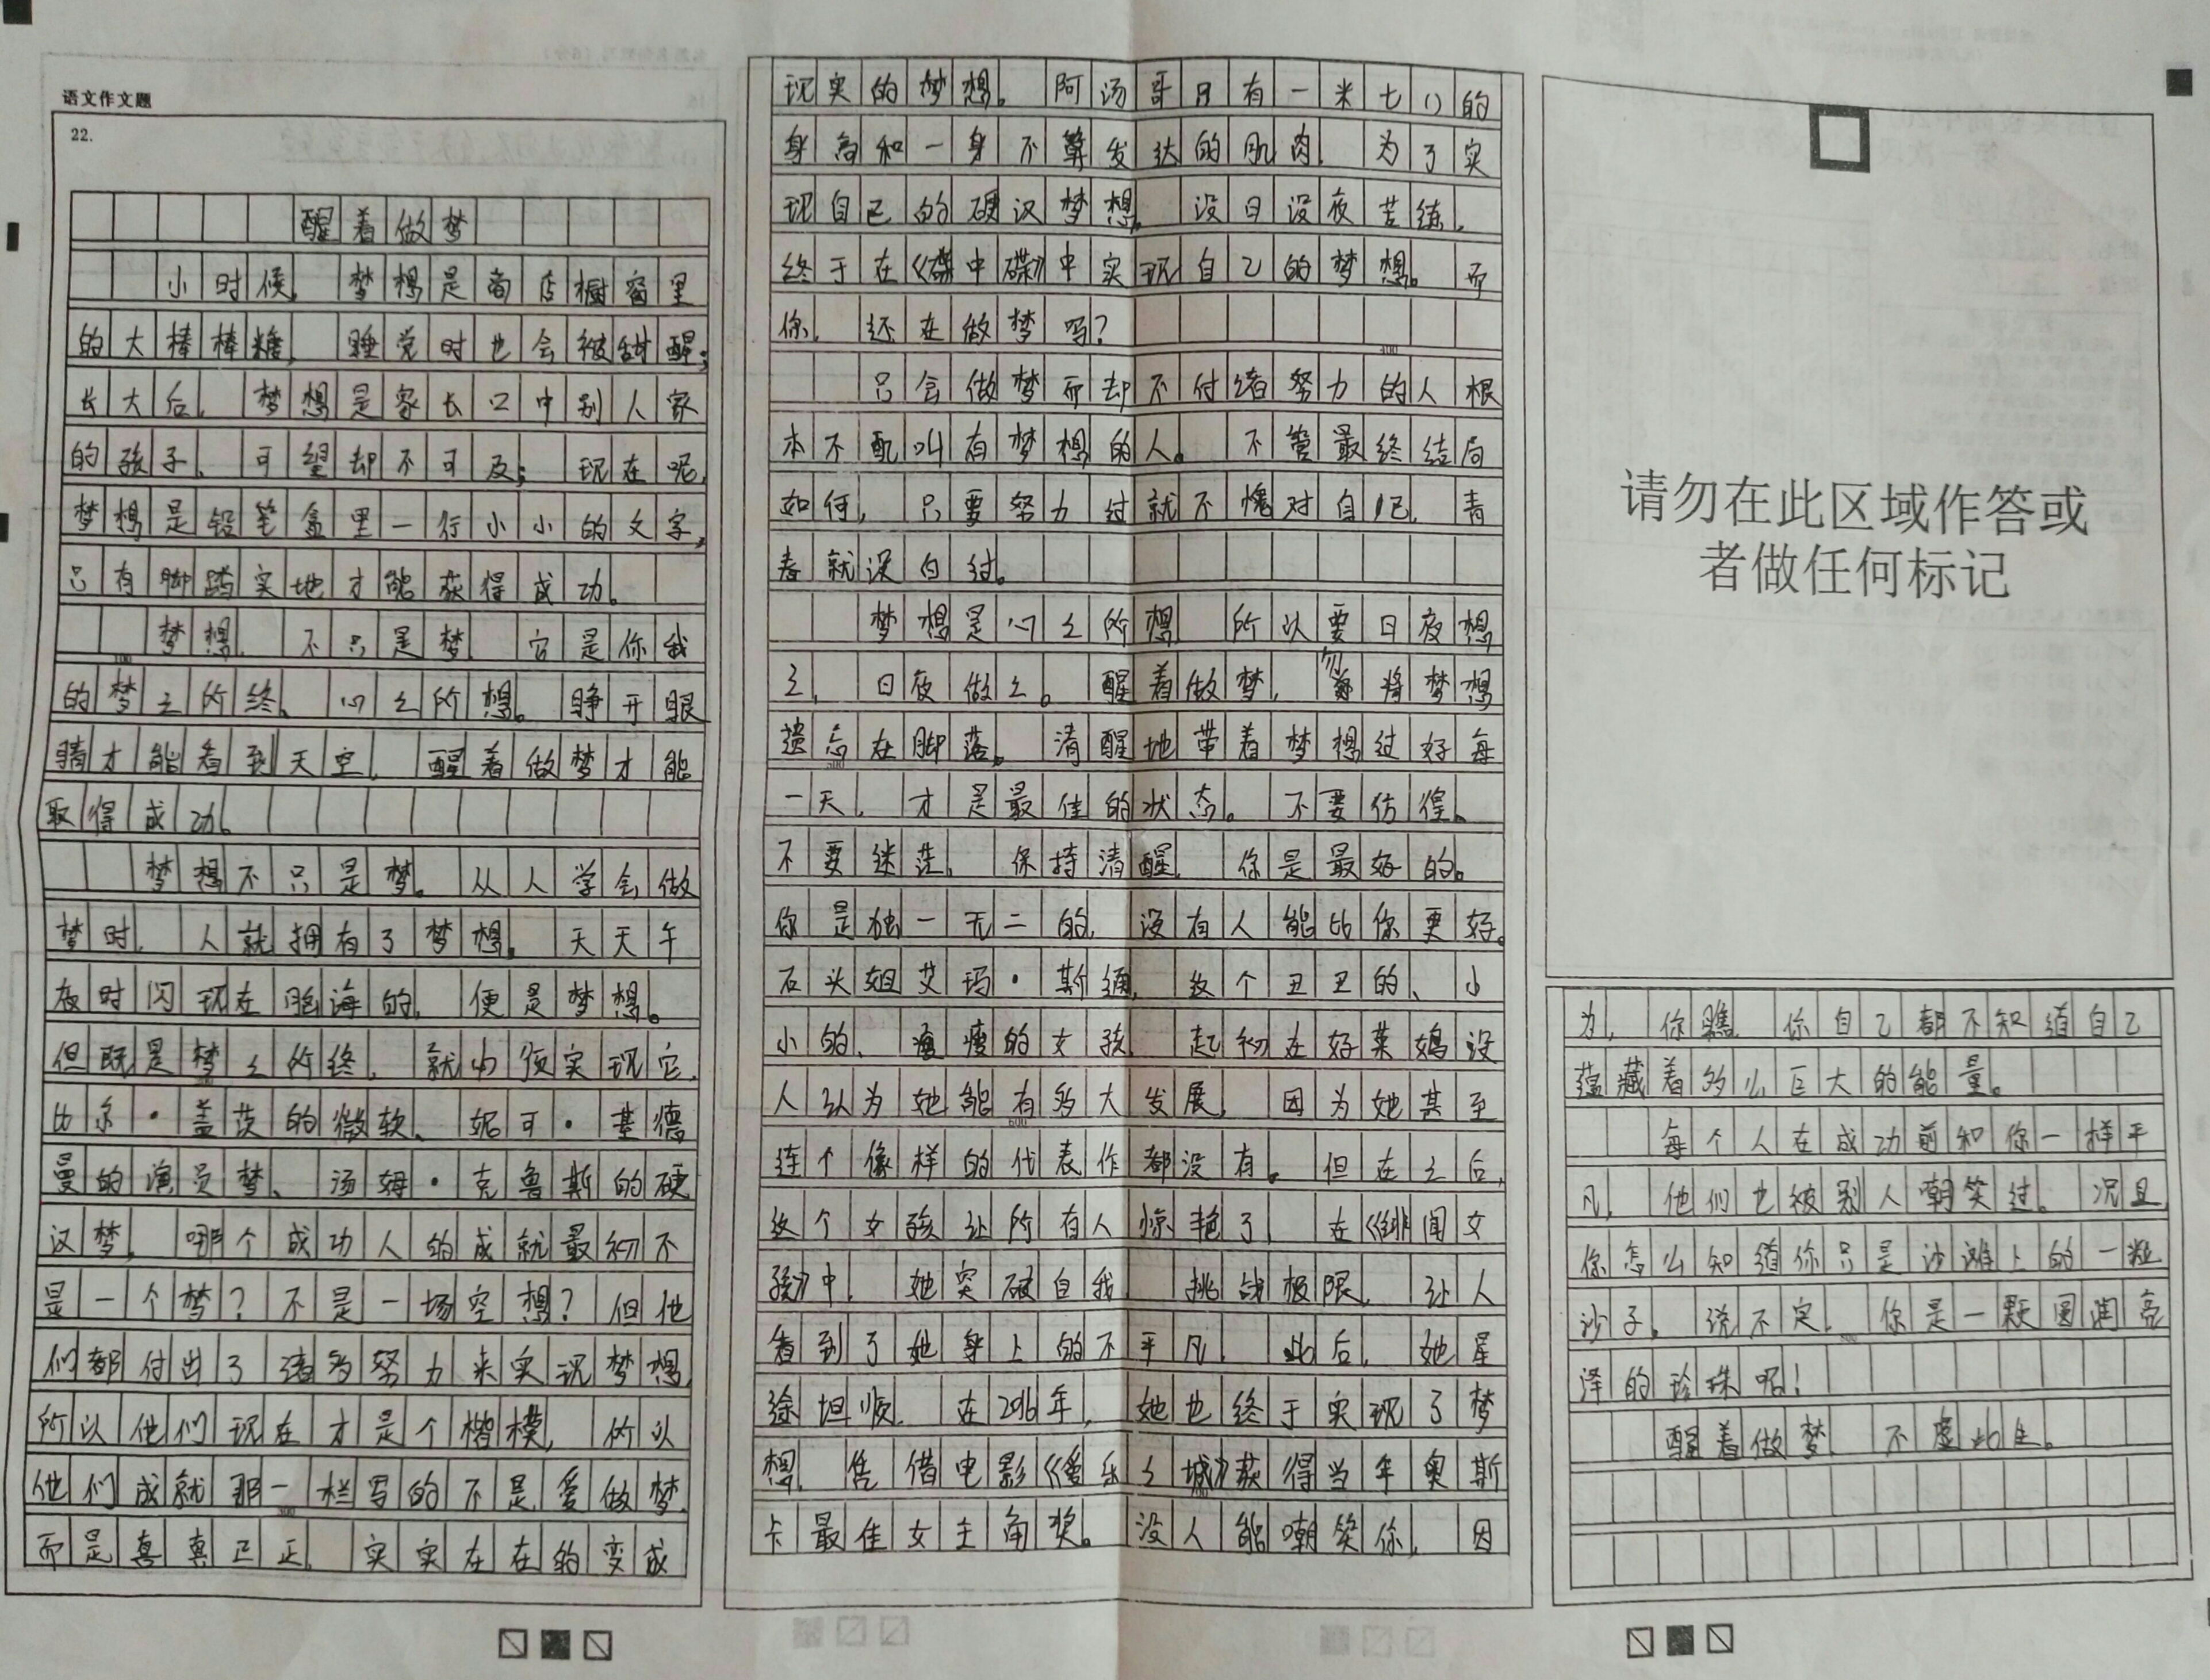 语文作文题
22.
醒着做梦
小时候，梦想是商店橱窗里
的大棒棒糖，睡觉时也会被甜醒；
长大后，梦想是家长口中别人家
的孩子，可望却不可及；现在呢，
梦想是铅笔盒里一行小小的文字，
只有脚踏实地才能获得成功。
梦想，不只是梦，它是你我
的梦之所终、心之所想。睁开眼
睛才能看到天空，醒着做梦才能
取得成功。
梦想不只是梦。从人学会做
梦时，人就拥有了梦想。天天午
夜时闪现在脑海的，便是梦想。
但既是梦之所终，就必须实现它，
比尔·盖茨的微软、妮可·基德
曼的演员梦、汤姆·克鲁斯的硬
汉梦，哪个成功人的成就最初不
是一个梦？不是一场空想？但他
们都付出了诸多努力来实现梦想，
所以他们现在才是个楷模，所以
他们成就那一栏写的不是爱做梦，
而是真真正正，实实在在的变成
现实的梦想。阿汤哥只有一米七〇的
身高和一身不算发达的肌肉，为了实
现自己的硬汉梦想，没日没夜苦练，
终于在《碟中碟》中实现自己的梦想。而
你，还在做梦吗？
400
只会做梦而却不付诸努力的人根
本不配叫有梦想的人。不管最终结局
如何，只要努力过就不愧对自己，青
春就没白过。
梦想是心之所想，所以要日夜想
之，日夜做之。醒着做梦，勿将梦想
遗忘在脚落。清醒地带着梦想过好每
一天，才是最佳的状态。不要彷徨。
不要迷茫，保持清醒，你是最好的。
你是独一无二的，没有人能比你更好。
石头姐艾玛·斯通，这个丑丑的、小
小的、瘦瘦的女孩，起初在好莱坞没
人认为她能有多大发展，因为她甚至
连个像样的代表作都没有。但在之后，
这个女孩让所有人惊艳了，在《绯闻女
孩》中，她突破自我，挑战极限，让人
看到了她身上的不平凡，此后，她星
途坦顺，在2016年，她也终于实现了梦
想，凭借电影《爱乐之城》获得当年奥斯
卡最佳女主角奖。没人能嘲笑你，因
请勿在此区域作答或
者做任何标记
为，你瞧，你自己都不知道自己
蕴藏着多么巨大的能量。
每个人在成功前和你一样平
凡，他们也被别人嘲笑过。况且，
你怎么知道你只是沙滩上的一粒
沙子。说不定，你是一颗圆润亮
泽的珍珠呢！
醒着做梦，不虚此生。